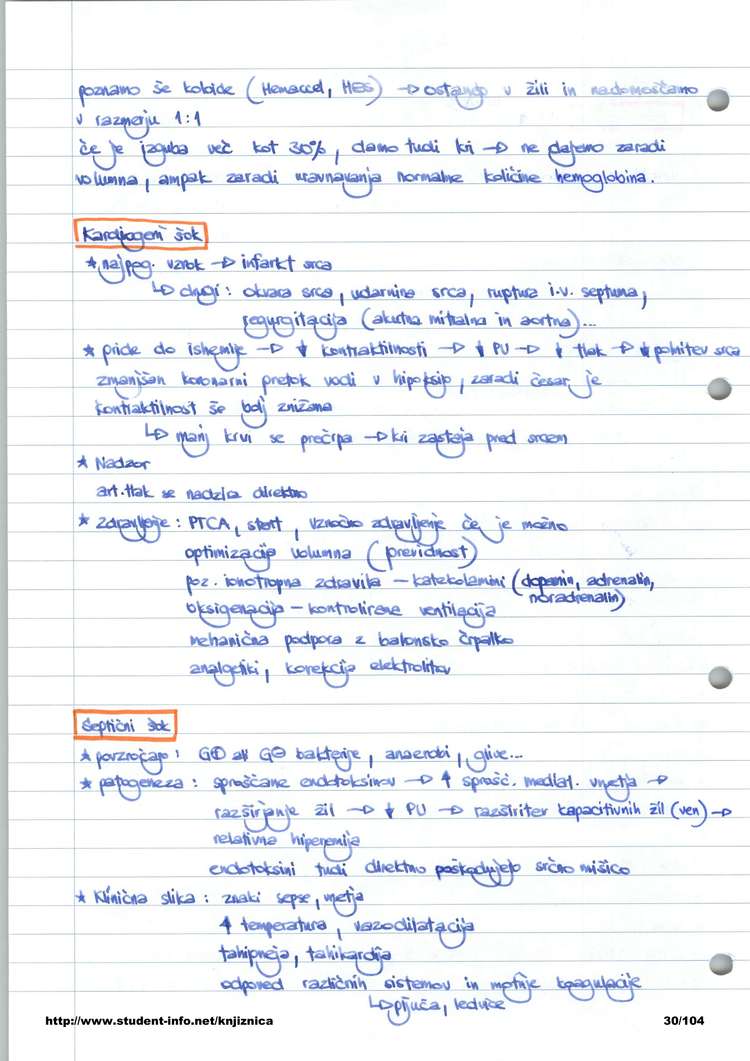 poznamo še koloide (Hemaccel, HES) → ostanejo v žili in nadomeščamo
v razmerju 1:1
če je izguba več kot 30%, damo tudi kri → ne dajemo zaradi
volumna, ampak zaradi uravnavanja normalne količine hemoglobina.
Kardiogeni šok
* najpog. vzrok → infarkt srca
↳ drugi: okvara srca, udarnine srca, ruptura i.v. septuma,
regurgitacija (akutna mitralna in aortna)...
* pride do ishemije → ↓ kontraktilnosti → ↓ PU → ↓ tlak → ↓ polnitev srca
zmanjšan koronarni pretok vodi v hipoksijo, zaradi česar je
kontraktilnost še bolj znižana
↳ manj krvi se prečrpa → kri zastaja pred srcem
* Nadzor
art. tlak se nadzira direktno
* Zdravljenje: PTCA, stent, vzročno zdravljenje če je možno
optimizacija volumna (previdnost)
poz. ionotropna zdravila – katekolamini (dopamin, adrenalin,
noradrenalin)
oksigenacija – kontrolirana ventilacija
mehanična podpora z balonsko črpalko
analgetiki, korekcija elektrolitov
Septični šok
* povzročajo: G⊕ ali G⊖ bakterije, anaerobi, glive...
* patogeneza: sproščane endotoksinov → ↑ sprošč. mediat. vnetja →
razširjanje žil → ↓ PU → razširitev kapacitivnih žil (ven) →
relativna hiperemija
endotoksini tudi direktno poškodujejo srčno mišico
* Klinična slika: znaki sepse, vnetja
↑ temperatura, vazodilatacija
tahipneja, tahikardija
odpoved različnih sistemov in motnje koagulacije
↳ pljuča, ledvice
http://www.student-info.net/knjiznica 30/104